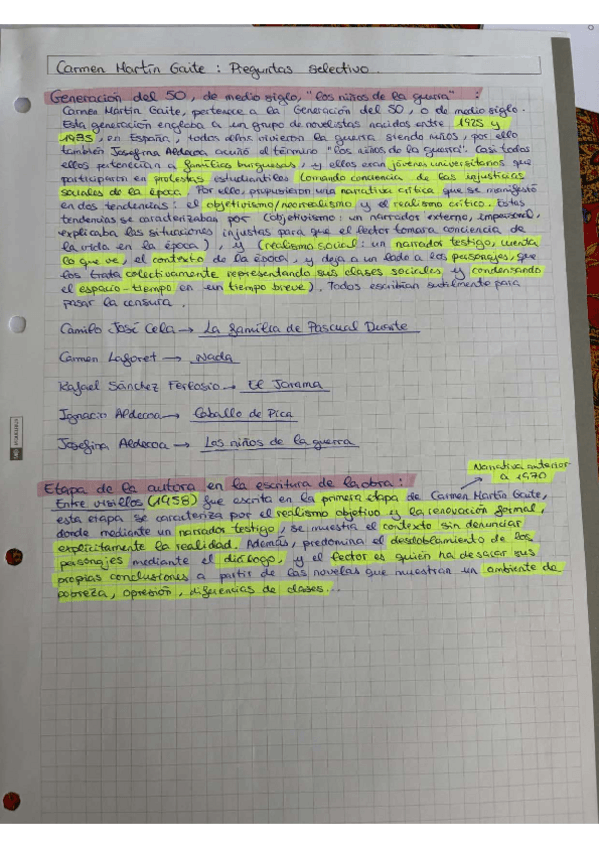 Carmen Martín Gaite : Preguntas selectivo.
Generación del 50, de medio siglo, "los niños de la guerra" :
Carmen Martín Gaite, pertenece a la Generación del 50, o de medio siglo.
Esta generación engloba a un grupo de novelistas nacidos entre 1925 y
1935, en España, todos ellos vivieron la guerra siendo niños, por ello
también Josefina Aldecoa acuñó el término "los niños de la guerra". Casi todos
ellos pertenecían a familias burguesas, y ellos eran jóvenes universitarios que
participaron en protestas estudiantiles tomando conciencia de las injusticias
sociales de la época. Por ello, propusieron una narrativa crítica que se manifestó
en dos tendencias: el objetivismo/neorrealismo y el realismo crítico. Estas
tendencias se caracterizaban por (objetivismo: un narrador externo, impersonal,
explicaba las situaciones injustas para que el lector tomara conciencia de
la vida en la época), y (realismo social: un narrador testigo, cuenta
lo que ve, el contexto de la época, y deja a un lado a los personajes, que
los trata colectivamente representando sus clases sociales y condensando
el espacio-tiempo en un tiempo breve). Todos escribían sutilmente para
pasar la censura.
Camilo José Cela → La familia de Pascual Duarte
Carmen Laforet → Nada
Rafael Sánchez Ferlosio → El Jarama
Ignacio Aldecoa → Caballo de Pica
Josefina Aldecoa → Los niños de la guerra
Narrativa anterior
a 1970
Etapa de la autora en la escritura de la obra:
Entre visillos (1958) fue escrita en la primera etapa de Carmen Martín Gaite,
esta etapa se caracteriza por el realismo objetivo y la renovación formal,
donde mediante un narrador testigo, se muestra el contexto sin denunciar
explícitamente la realidad. Además, predomina el desdoblamiento de los
personajes mediante el diálogo, y el lector es quién ha de sacar sus
propias conclusiones a partir de las novelas que muestran un ambiente de
pobreza, opresión, diferencias de clases...